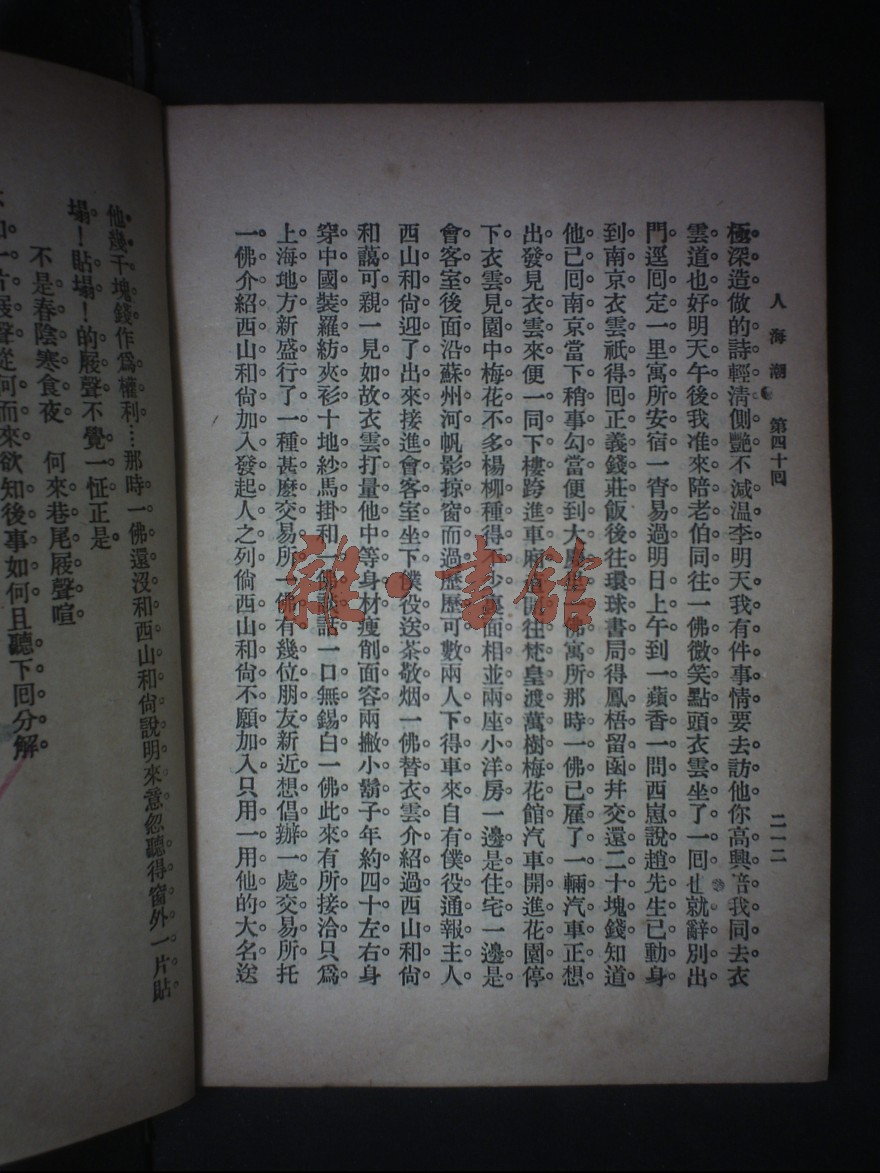 人海潮 第四十回 二一二
極深造做的詩輕清側艷不減溫李明天我有件事情要去訪他你高興陪我同去衣
雲道也好明天午後我准來陪老伯同往一佛微笑點頭衣雲坐了一囘也就辭別出
門逕囘定一里寓所安宿一宵易過明日上午到一蘋香一問西崽說趙先生已動身
到南京衣雲祇得囘正義錢莊飯後往環球書局得鳳梧留函幷交還二十塊錢知道
他已囘南京當下稍事勾當便到大慶里一佛寓所那時一佛已雇了一輛汽車正想
出發見衣雲來便一同下樓跨進車廂直開往梵皇渡萬樹梅花館汽車開進花園停
下衣雲見園中梅花不多楊柳種得不少裏面相並兩座小洋房一邊是住宅一邊是
會客室後面沿蘇州河帆影掠窗而過歷歷可數兩人下得車來自有僕役通報主人
西山和尙迎了出來接進會客室坐下僕役送茶敬烟一佛替衣雲介紹過西山和尙
和藹可親一見如故衣雲打量他中等身材瘦削面容兩撇小鬍子年約四十左右身
穿中國裝羅紡夾衫十地紗馬掛和一佛談話一口無錫白一佛此來有所接洽只爲
上海地方新盛行了一種甚麽交易所一佛有幾位朋友新近想倡辦一處交易所托
一佛介紹西山和尙加入發起人之列倘西山和尙不願加入只用一用他的大名送
他幾千塊錢作爲權利…那時一佛還沒和西山和尙說明來意忽聽得窗外一片貼
塌！貼塌！的屐聲不覺一怔正是
不是春陰寒食夜 何來巷尾屐聲喧
一片屐聲從何而來欲知後事如何且聽下囘分解
雜·書館